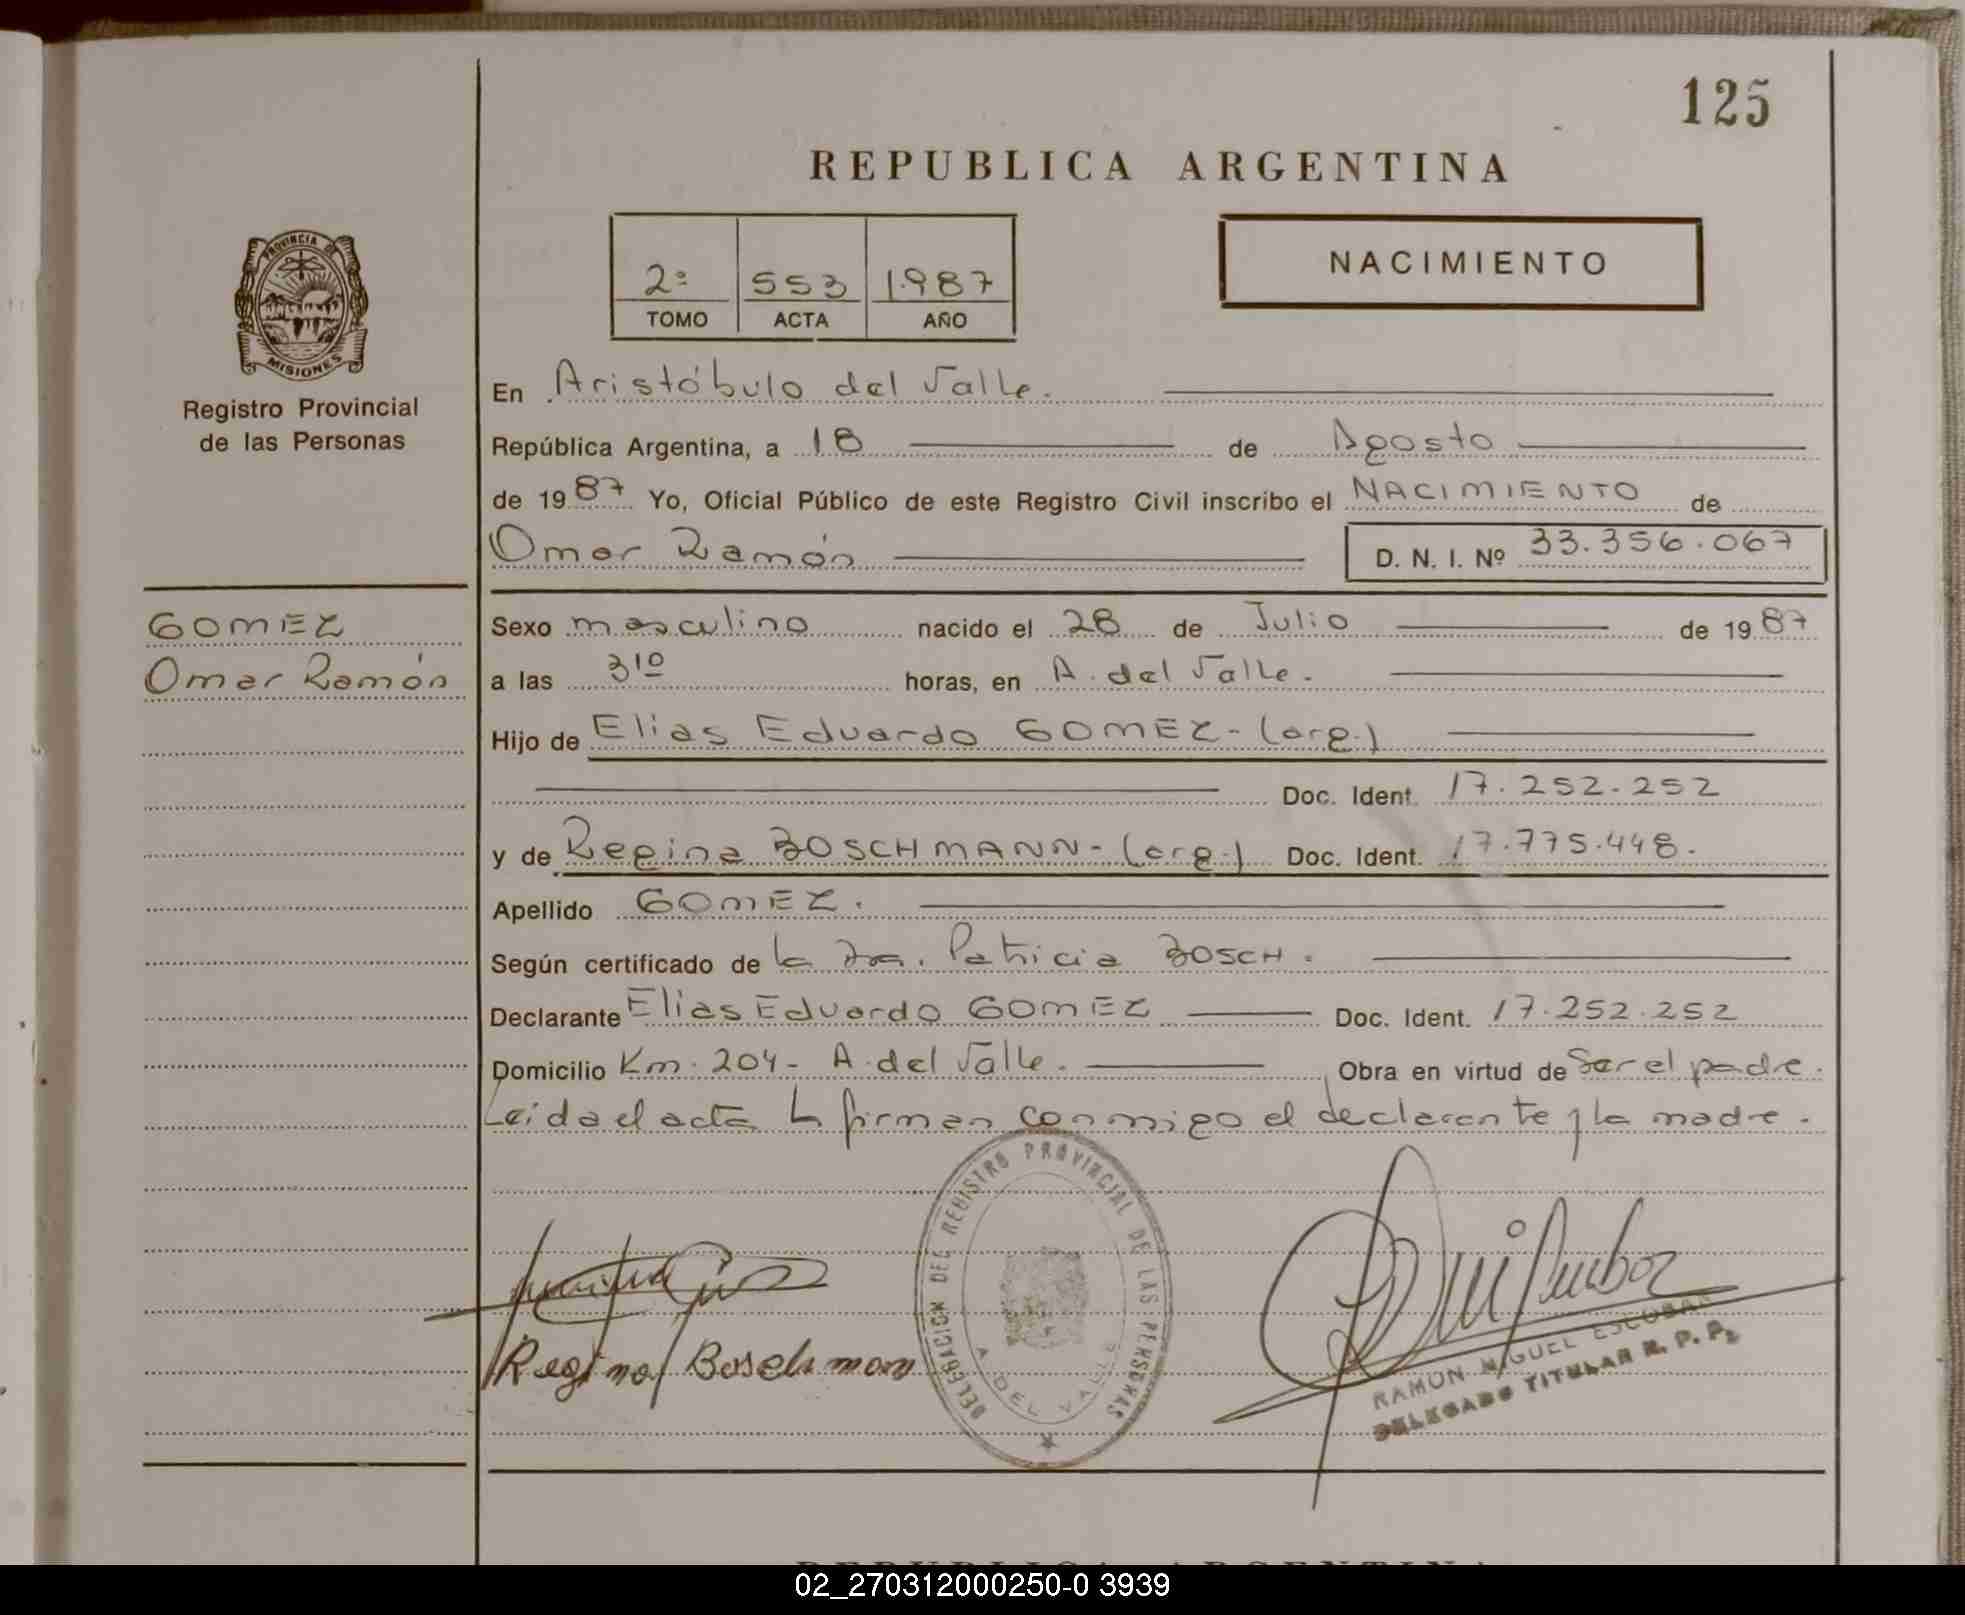 125
REPUBLICA ARGENTINA
PROVINCIA DE
MISIONES
Registro Provincial
de las Personas
2º 553 1.987
TOMO ACTA AÑO
NACIMIENTO
En Aristóbulo del Valle.
República Argentina, a 18 de Agosto
de 1987 Yo, Oficial Público de este Registro Civil inscribo el NACIMIENTO de
Omar Ramón D. N. I. Nº 33.356.067
GOMEZ
Omar Ramón
Sexo masculino nacido el 28 de Julio de 1987
a las 310 horas, en A. del Valle.
Hijo de Elias Eduardo GOMEZ - (arg.)
Doc. Ident. 17.252.252
y de Regina BOSCHMANN - (arg.) Doc. Ident. 17.775.448.
Apellido GOMEZ.
Según certificado de la Dra. Patricia BOSCH.
Declarante Elias Eduardo GOMEZ Doc. Ident. 17.252.252
Domicilio Km. 204 - A. del Valle. Obra en virtud de Ser el padre.
Leida el acta la firman conmigo el declarante y la madre.
DELEGACION DEL REGISTRO PROVINCIAL DE LAS PERSONAS
A. DEL VALLE
Regina Boschman
RAMON MIGUEL ESCOBAR
DELEGADO TITULAR R. P. P.
REPUBLICA ARGENTINA
02_270312000250-0 3939